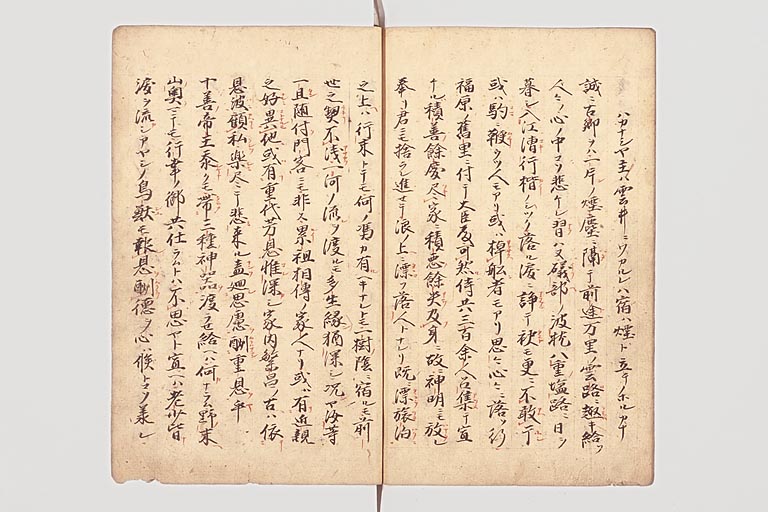 ハカナシヤ主ハ雲井ニワカルレハ宿ハ煙ト立ノホルカナ
誠ニ古郷ヲハ一片ノ煙塵ニ隔テ前途万里ノ雲路ニ趣キ給フ
人々ノ心ノ中コソ悲ケレ習ハヌ礒部ノ波枕八重塩路ニ日ヲ
暮シ入江漕行楷ノシツク落ル涙ニ諍テ袂モ更ニ不敢干
或ハ駒ニ鞭ウツ人モアリ或ハ棹舩者モアリ思々心々ニ落ツ行
福原ノ舊里ニ付テ大臣殿可然侍共三百余人召集テ宣
ケルハ積善餘慶尽家ニ積悪餘殃及身ニ故ニ神明ニモ放レ
奉リ君ニモ捨ラレ進セテ浪ノ上ニ漂フ落人トナレリ既ニ漂旅泊
之上ハ行末トテモ何ノ馮カ有ヘキナレトモ一樹陰ニ宿ルモ前
世之契不浅一河ノ流ヲ渡ルモ多生縁猶深シ況ヤ汝等
一旦随付門客ニモ非ス累祖相傳ノ家人ナリ或ハ有近親
之好異他或有重代芳恩惟深シ家内繁昌ノ古ハ依
恩波顧私楽尽テ悲来ル盍廻思慮酬重恩乎
十善帝王忝クモ帯三種神器渡ラセ給ヘハ何ナラン野末
山奥ニテモ行幸ノ御共仕ラムトハ不思ヤト宣ヘハ老少皆
涙ヲ流シアヤシノ鳥獣モ報恩酬徳ヲ心ハ候トコソ羕レ